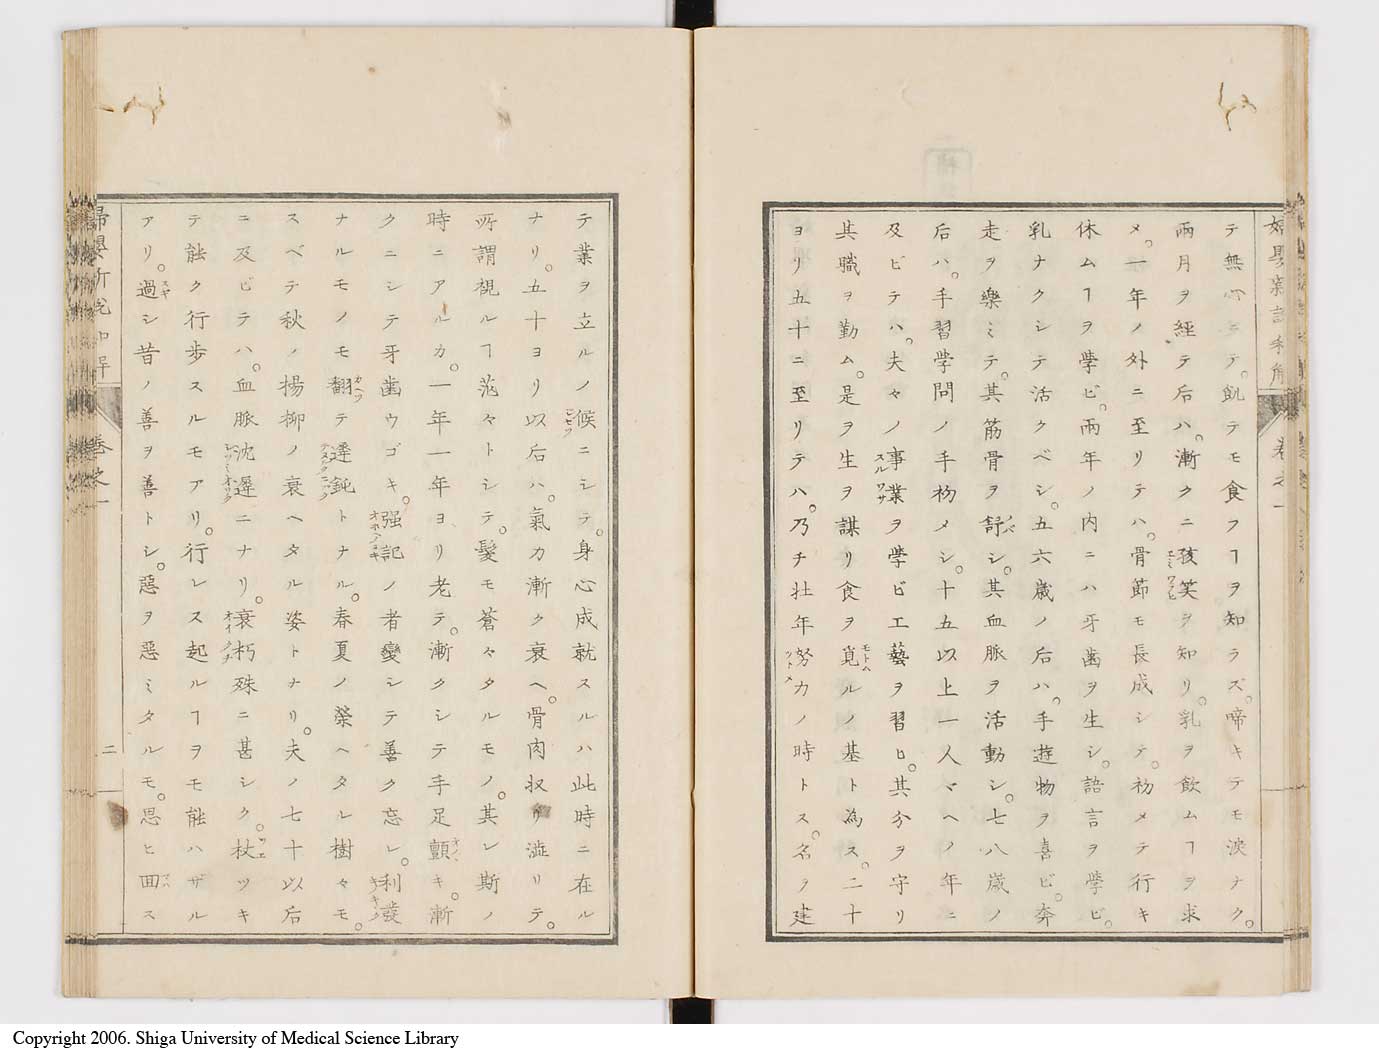 テ無心ニテ。飢テモ食フヿヲ知ラズ。啼キテモ涙ナク。
兩月ヲ經テ后ハ。漸クニ孩笑ヲ知リ。乳ヲ飲ムヿヲ求
メ。一年ノ外ニ至リテハ。骨節モ長成シテ。初メテ行キ
休ムヿヲ學ビ。兩年ノ内ニハ牙齒ヲ生シ。語言ヲ學ビ。
乳ナクシテ活クベシ。五六歳ノ后ハ。手遊物ヲ喜ビ。奔
走ヲ樂ミテ。其筋骨ヲ舒シ。其血脈ヲ活動シ。七八歳ノ
后ハ。手習學問ノ手初メシ。十五以上一人マヘノ年ニ
及ビテハ。夫々ノ事業ヲ學ビ工藝ヲ習ヒ。其分ヲ守リ
其職ヲ勤ム。是ヲ生ヲ謀リ食ヲ覓ルノ基ト為ス。二十
ヨリ五十ニ至リテハ。乃チ壮年努力ノ時トス。名ヲ建
テ業ヲ立ルノ候ニシテ。身心成就スルハ此時ニ在ル
ナリ。五十ヨリ以后ハ。氣力漸ク衰ヘ。骨肉収リ澁リテ。
所謂視ルヿ茫々トシテ。髮モ蒼々タルモノ。其レ斯ノ
時ニアルカ。一年一年ヨリ老テ。漸クシテ手足顫キ。漸
クニシテ牙齒ウゴキ。强記ノ者變シテ善ク忘レ。利發
ナルモノモ翻テ遲鈍トナル。春夏ノ榮ヘタル樹々モ。
スベテ秋ノ楊柳ノ衰ヘタル姿トナリ。夫ノ七十以后
ニ及ビテハ。血脈沈遲ニナリ。衰朽殊ニ甚シク。杖ツキ
テ能ク行歩スルモアリ。行レス起ルヿヲモ能ハザル
アリ。過シ昔ノ善ヲ善トシ。惡ヲ惡ミタルモ。思ヒ囬ス
卷之一
二
Copyright 2006. Shiga University of Medical Science Library